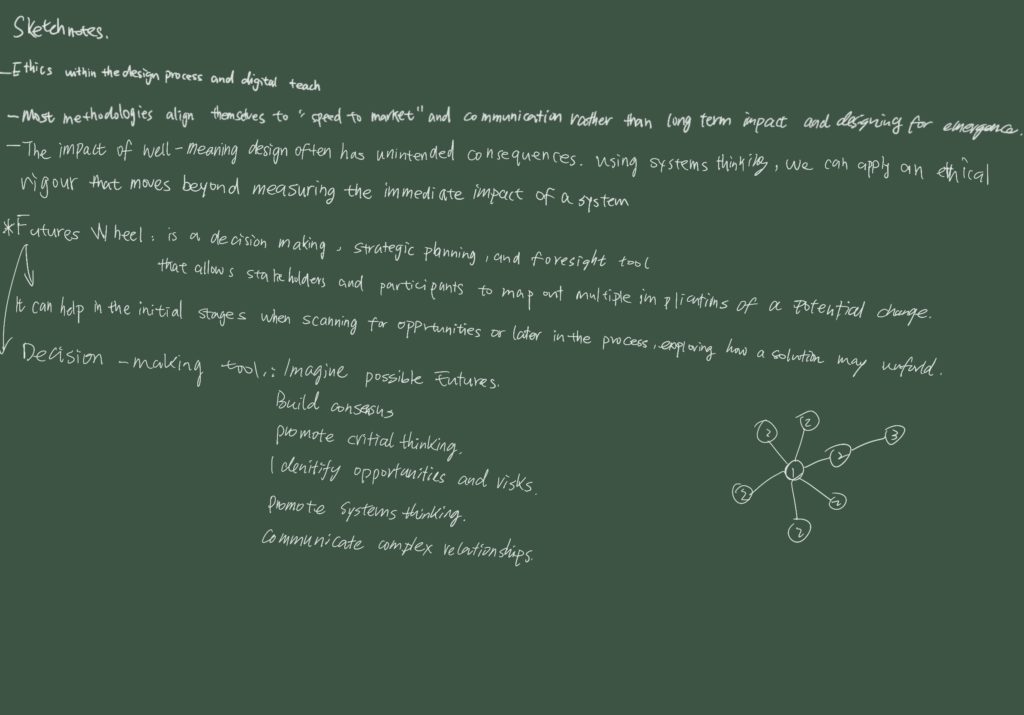 Sketchnotes.
- Ethics within the design process and digital teach
- Most methodologies align themselves to "speed to market" and communication rather than long term impact and designing for emergence.
- The impact of well-meaning design often has unintended consequences. Using systems thinking, we can apply an ethical
rigour that moves beyond measuring the immediate impact of a system
*Futures Wheel: is a decision making, strategic planning, and foresight tool
that allows stakeholders and participants to map out multiple implications of a potential change.
It can help in the initial stages when scanning for opprtunities or later in the process, exploring how a solution may unfold.
Decision-making tool: Imagine possible Futures.
Build consensus
promote critial thinking.
Idenitify opportunities and risks.
Promote systems thinking.
Communicate complex relationships.
2 2 3
2
1
2 2
2